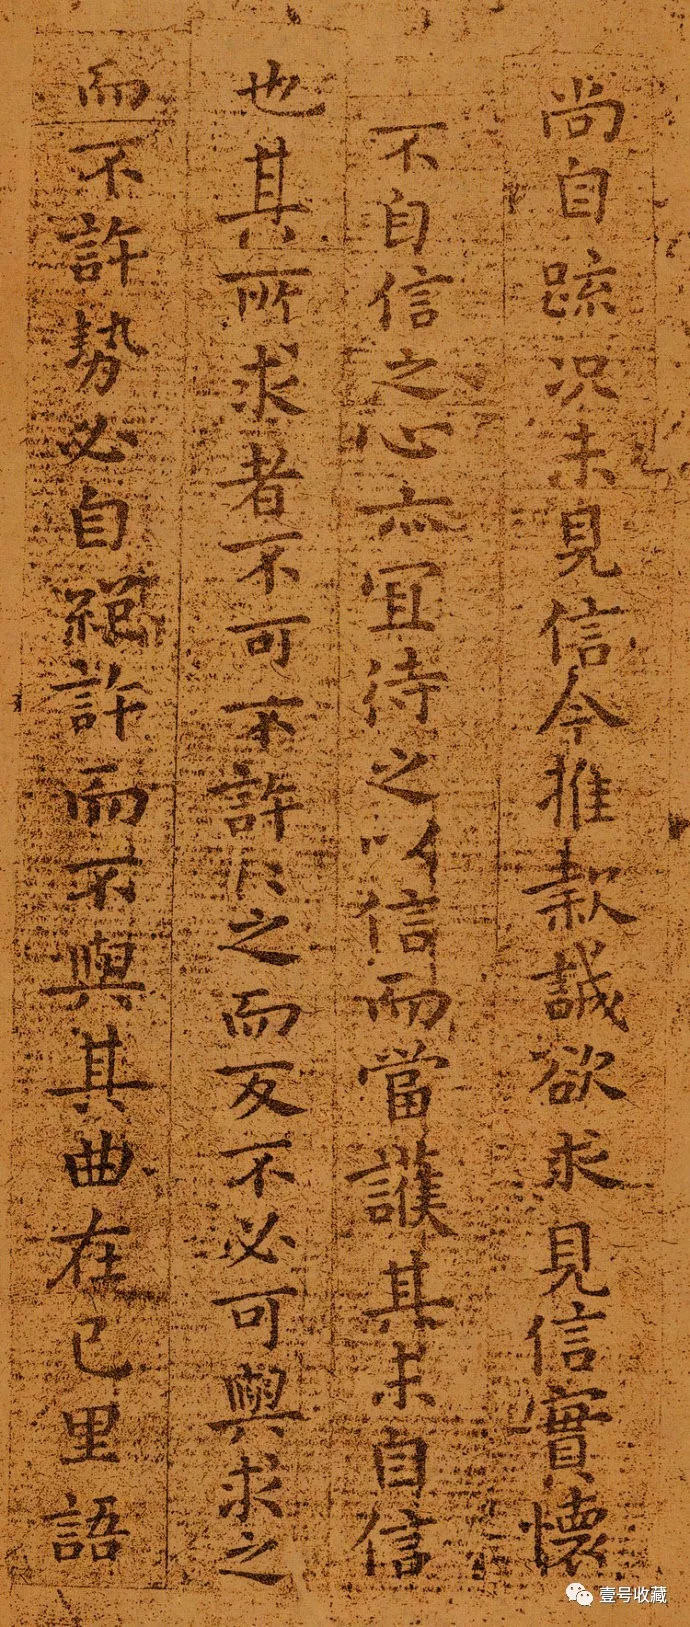 尚自踈况未見信今推款誠欲求見信實懷
不自信之心亦宜待之以信而當護其未自信
也其所求者不可不許〻之而反不必可與求之
而不許勢必自絕許而不與其曲在己里語
壹号收藏